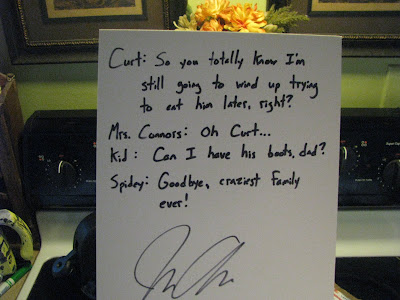 Curt: So you totally know I'm
still going to wind up trying
to eat him later, right?
Mrs. Connors: Oh Curt...
Kid: Can I have his boots, dad?
Spidey: Goodbye, craziest family
ever!